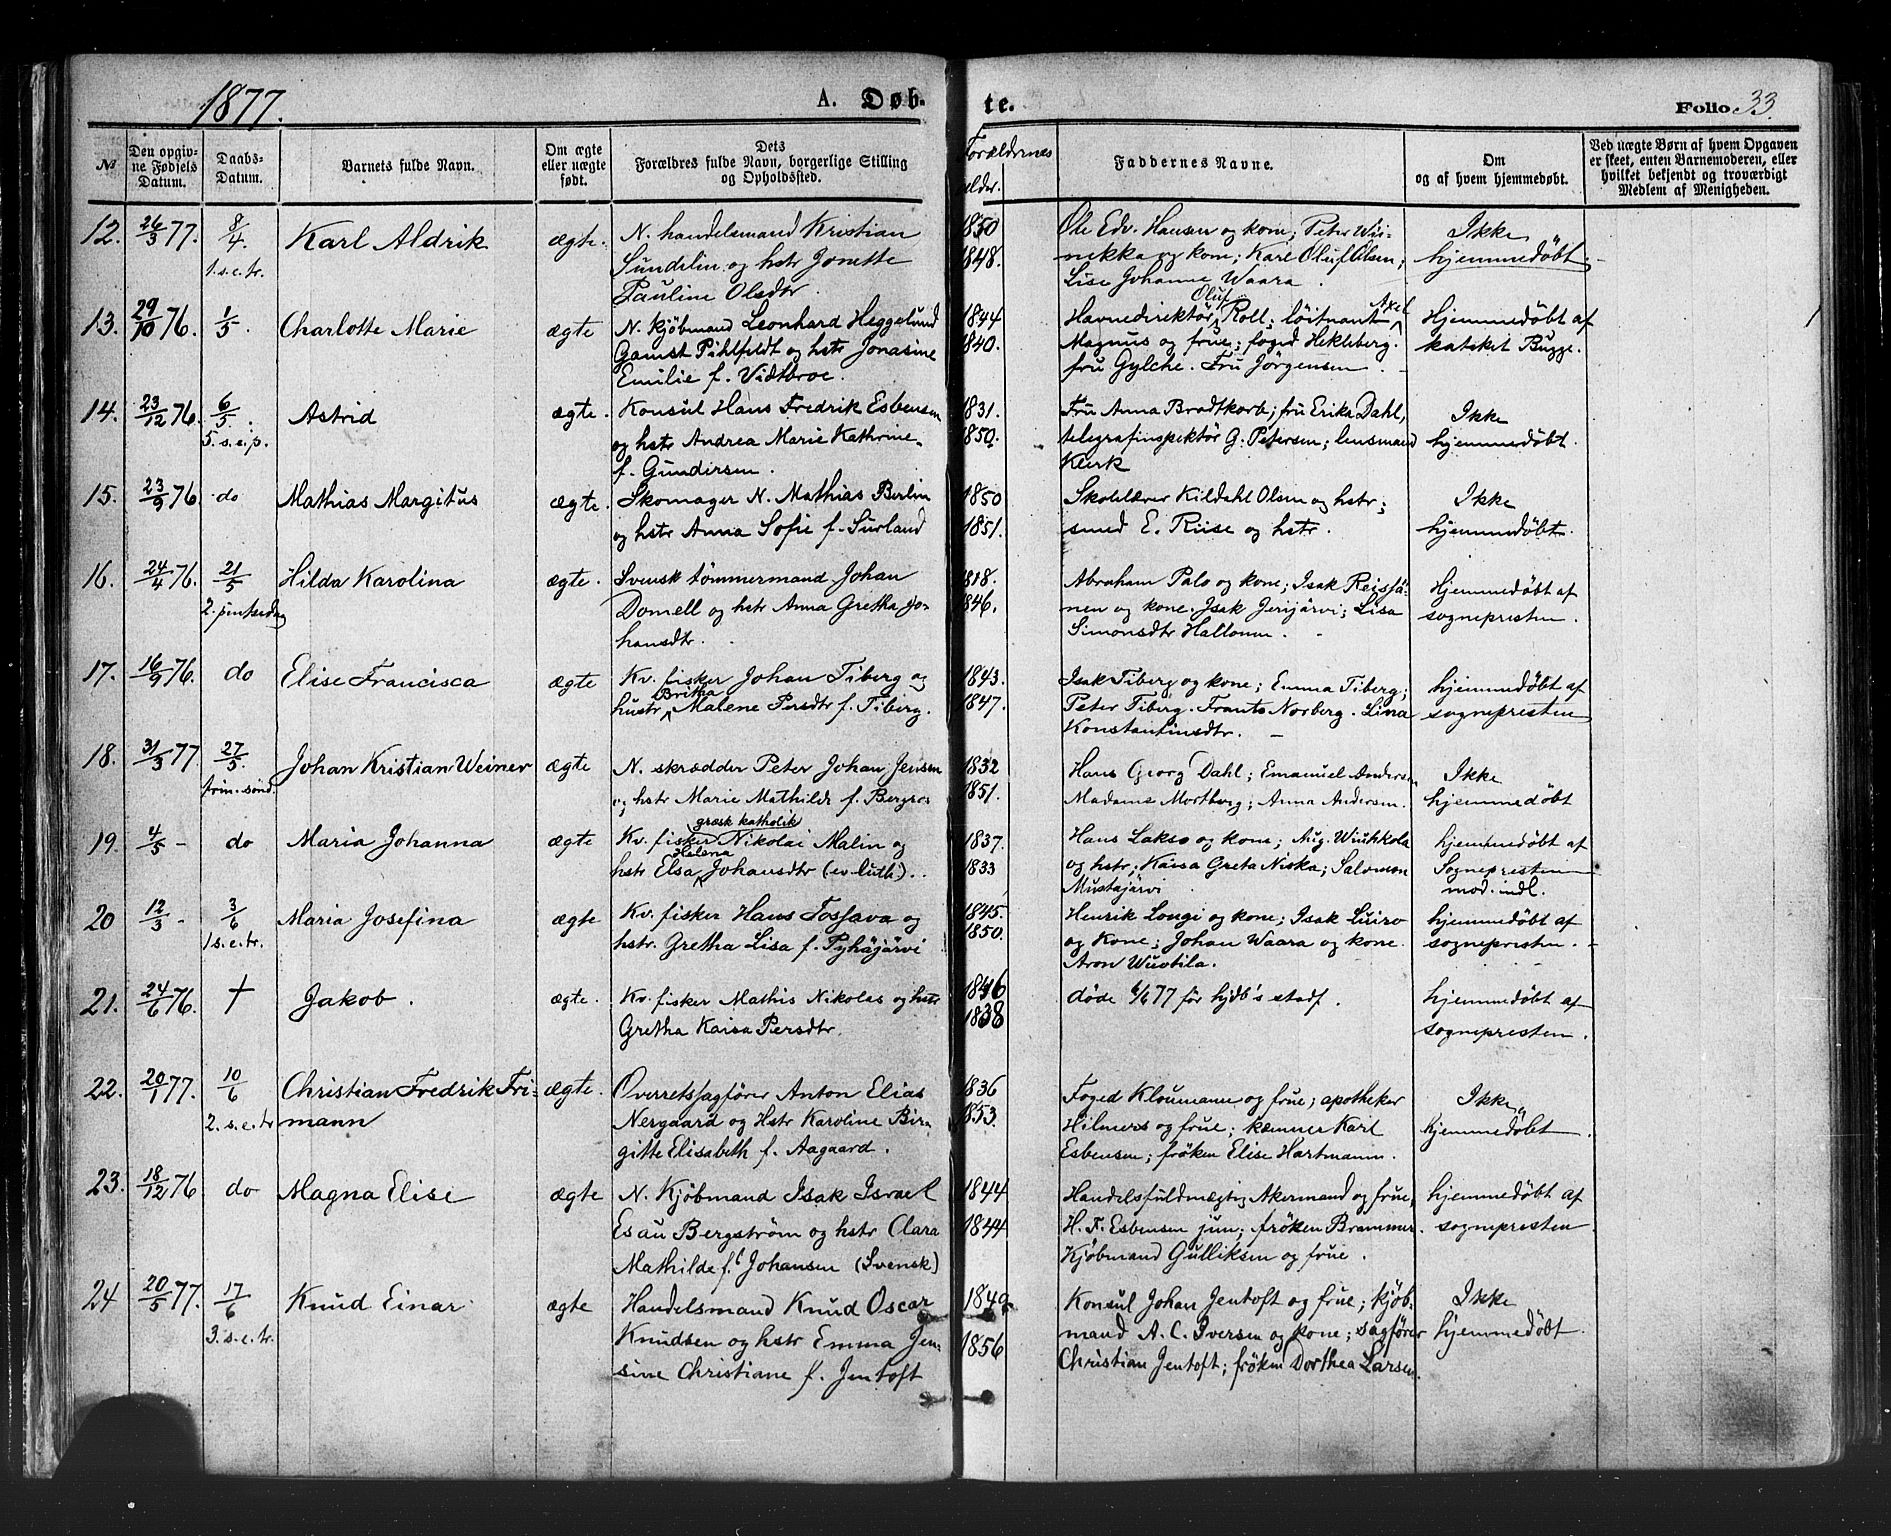 1877.
A. Døb-
te.
Folio 33.
№
Den opgiv-
ne Fødsels
Datum.
Daabs-
Datum.
Barnets fulde Navn.
Om ægte
eller uægte
født.
Dets
Forældres fulde Navn, borgerlige Stilling
og Opholdssted.
Forældrenes
Faddernes Navne.
Om
og af hvem hjemmedøbt.
Ved uægte Børn af hvem Opgaven
er skeet, enten Barnemoderen, eller
hvilket bekjendt og troværdigt
Medlem af Menigheden.
12. 26/3 77. 8/4 1. s. e. tr. Karl Aldrik ægte.
N. handelsmand Kristian
Sundelin og hstr Jonette
Pauline Olsdtr
1850
1848.
Ole Edv. Hansen og kone; Peter Wii-
nikka og kone; Karl Oluf Olsen;
Lise Johanne Waara.
Ikke
hjemmedøbt.
13. 29/10 76. 1/5 Charlotte Marie ægte
N. Kjøbmand Leonhard Heggelund
Gamst Pihlfeldt og hstr Jonasine
Emilie f. Vidtbroe.
1844
1840.
Havnedirektör Oluf Roll; löitnant Axel
Magnus og frue; foged Hekleberg.
fru Gylche. Fru Jörgensen.
Hjemmedøbt af
kateket Bugge.
14. 23/12 76. 6/5 5. s. e. p. Astrid ægte.
Konsul Hans Fredrik Esbensen
og hstr Andrea Marie Kathrine
f. Gundersen.
1831.
1850.
Fru Anna Brodtkorb; fru Erika Dahl,
telegrafinspektör G. Petersen; lensmand
Klerk
Ikke
hjemmedøbt.
15. 23/9 76. do Mathias Margitus ægte.
Skomager N. Mathias Berlin
og hstr Anna Sofie f. Surland
1850
1851.
Skolelærer Kildahl Olsen og hstr;
smed E. Riise og hstr.
Ikke
hjemmedøbt.
16. 24/4 76. 21/5 2. pintsedag Hilda Karolina ægte.
Svensk tömmermand Johan
Domell og hstr Anna Gretha Jo-
hansdtr.
1818.
1846.
Abraham Palo og kone; Isak Reisjä-
nen og kone. Isak Jerijärvi; Lisa
Simonsdtr Hallonen.
Hjemmedøbt af
sognepresten.
17. 16/9 76. do Elise Francisca ægte
Kv. fisker Johan Tiberg og
hustr Britha Malene Persdtr f. Tiberg.
1843.
1847.
Isak Tiberg og kone; Emma Tiberg;
Peter Tiberg. Frants Norberg. Lina
Konstantinsdtr.
hjemmedøbt af
sognepresten
18. 31/3 77. 27/5. trin. sönd. Johan Kristian Weiner ægte
N. skrædder Peter Johan Jensen
og hstr Marie Mathilde f. Bergros
1832
1851.
Hans Georg Dahl; Emanuel Andersen
Madame Mortberg; Anna Andersen.
Ikke
hjemmedøbt
19. 4/5 - do Maria Johanna ægte
Kv. fisker græsk katholik Nikolai Malin og
hstr Elsa Helena Johansdtr (ev. luth.).
1837.
1833
Hans Lakso og kone; Aug. Wiukkola
og hstr; Kaisa Greta Niska; Salomon
Mustajärvi
hjemmedøbt af
Sognepresten
mod. indl.
20 12/3 - 3/6 1 s. e. tr. Maria Josefina ægte
Kv. fisker Hans Tosfava og
hstr. Gretha Lisa f. Pyhäjärvi
1845.
1850.
Henrik Longi og kone; Isak Luiro
og Kone; Johan Waara og kone.
Aron Wuotila.
hjemmedøbt af
sognepresten.
21. 24/6 76. † Jakob. ægte.
Kv. fisker Mathis Nikolas og hstr
Gretha Kaisa Persdtr.
1846
1838
döde 6/6 77 för hjdb's stadf.
hjemmedøbt af
sognepresten.
22. 20/1 77. 10/6 2. s. e. tr Christian Fredrik Fri-
mann
ægte.
Overretssagförer Anton Elias
Nergaard og Hstr Karoline Bir-
gitte Elisabeth f. Aagaard.
1836
1853.
Foged Kloumann og frue; apotheker
Hilmers og frue; kæmner Karl
Esbensen; fröken Elise Hartmann.
Ikke
hjemmedøbt.
23. 18/12 76 do Magna Elise ægte
N. Kjöbmand Isak Israel
Esau Bergström og hstr Clara
Mathilde f. Johansen (Svensk)
1844
1844
Handelsfuldmægtig Akermand og frue,
H. F. Esbensen jun; fröken Brammer.
Kjöbmand Gulliksen og frue.
hjemmedøbt af
sognepresten
24 20/5 77. 17/6 3. s. e. tr. Knud Einar ægte
Handelsmand Knud Oscar
Knudsen og hstr Emma Jen-
sine Christiane f. Jentoft
1849
1856
Konsul Johan Jentoft og frue; kjöb-
mand A. C. Iversen og kone; sagförer
Christian Jentoft; fröken Dorthea Larsen.
Ikke
hjemmedøbt.